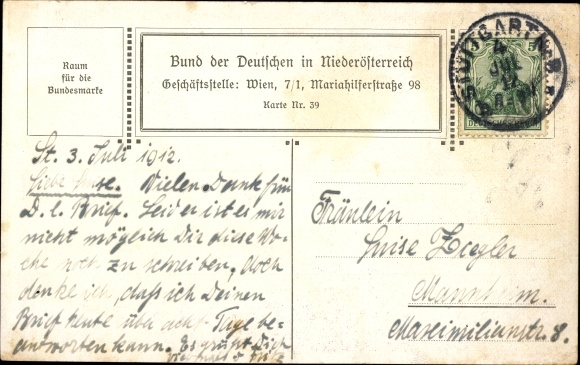 Raum
für die
Bundesmarke
Bund der Deutschen in Niederösterreich
Geschäftsstelle: Wien, 7/1, Mariahilferstraße 98
Karte Nr. 39
STUTTGART
4 JUL
12
5
St. 3. Juli 1912.
Liebe Luise. Vielen Dank für
D. l. Brief. Leider ist es mir
nicht möglich Dir diese Wo-
che noch zu schreiben, doch
denke ich, daß ich Deinen
Brief heute über acht Tage be-
antworten kann. Es grüßt Dich
Fräulein
Luise Ziegler
Mannheim.
Maximilianstr. 8.